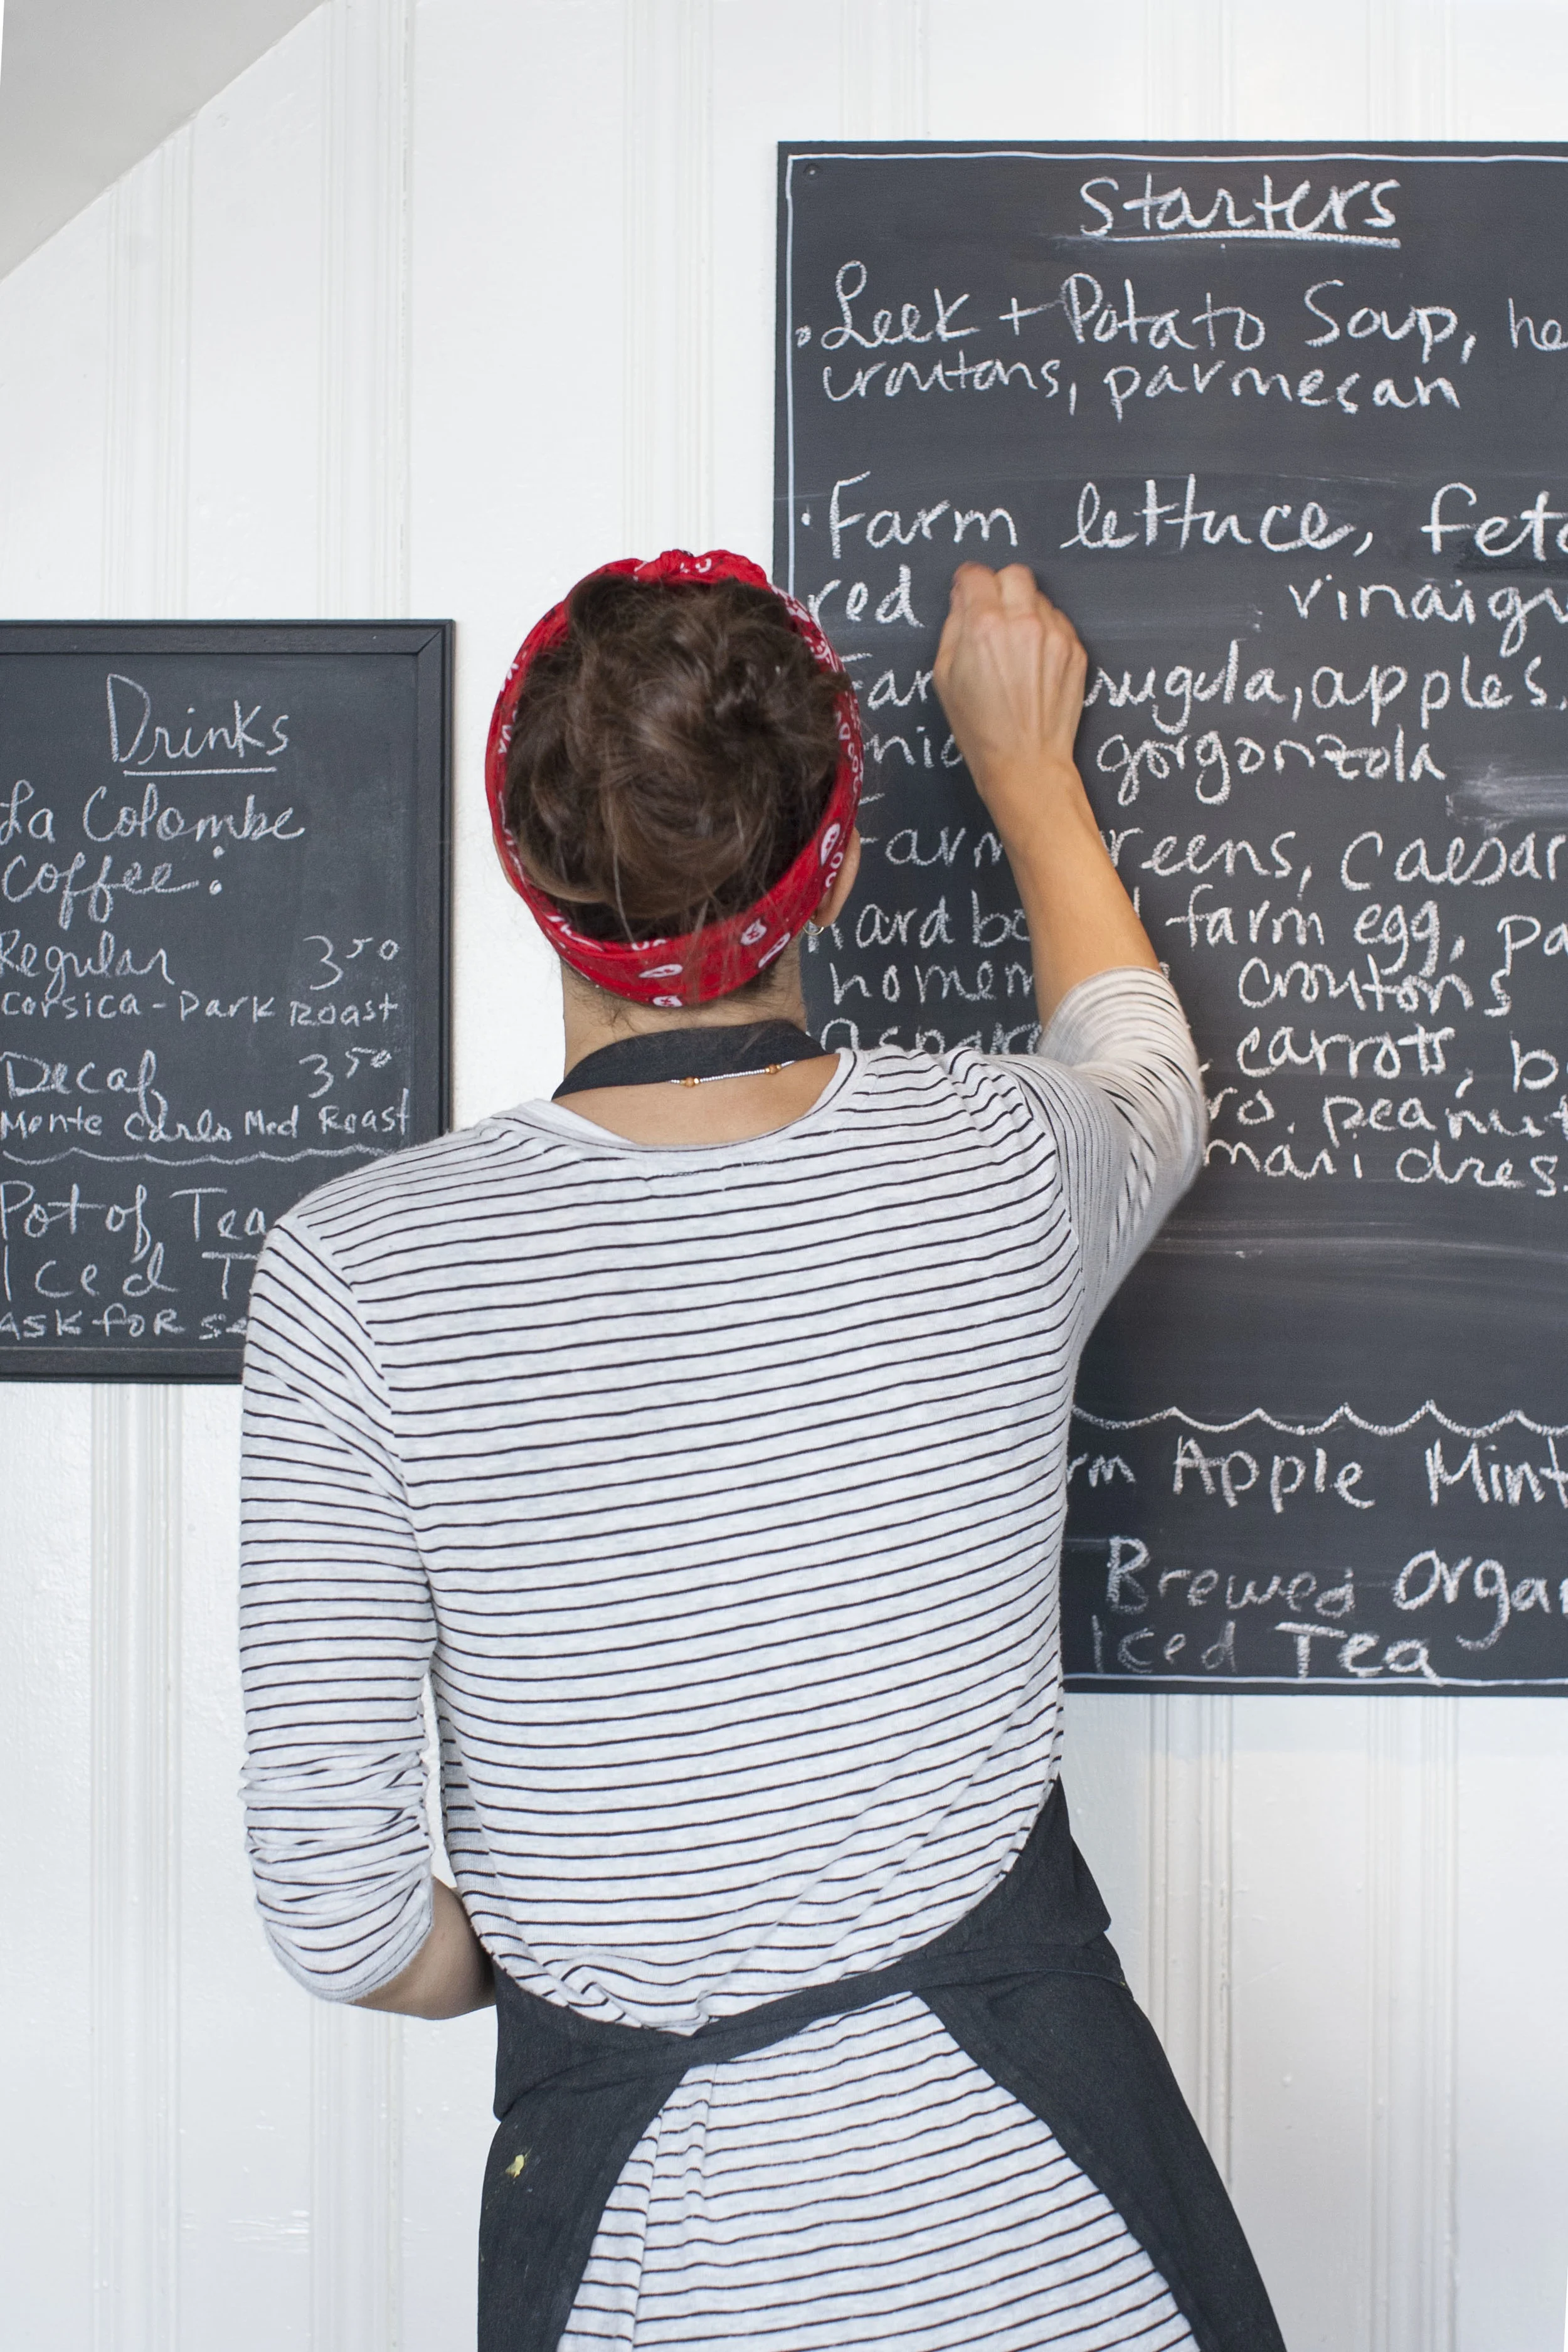 Drinks
La Colombe
Coffee:
Regular 3 50
Corsica - Dark Roast
Decaf 3 50
Monte Carlo Med Roast
Pot of Tea
Iced T
ask for se
Starters
• Leek + Potato Soup, he
croutons, parmesan
• Farm lettuce, feta
red vinaigr
Far rugula, apples.
nio gorgonzola
Farm reens, Caesar
hard bo farm egg, pa
homem croutons
aspara carrots, b
ro. peanut
mari dres.
rm Apple Mint
Brewed Organ
Iced Tea